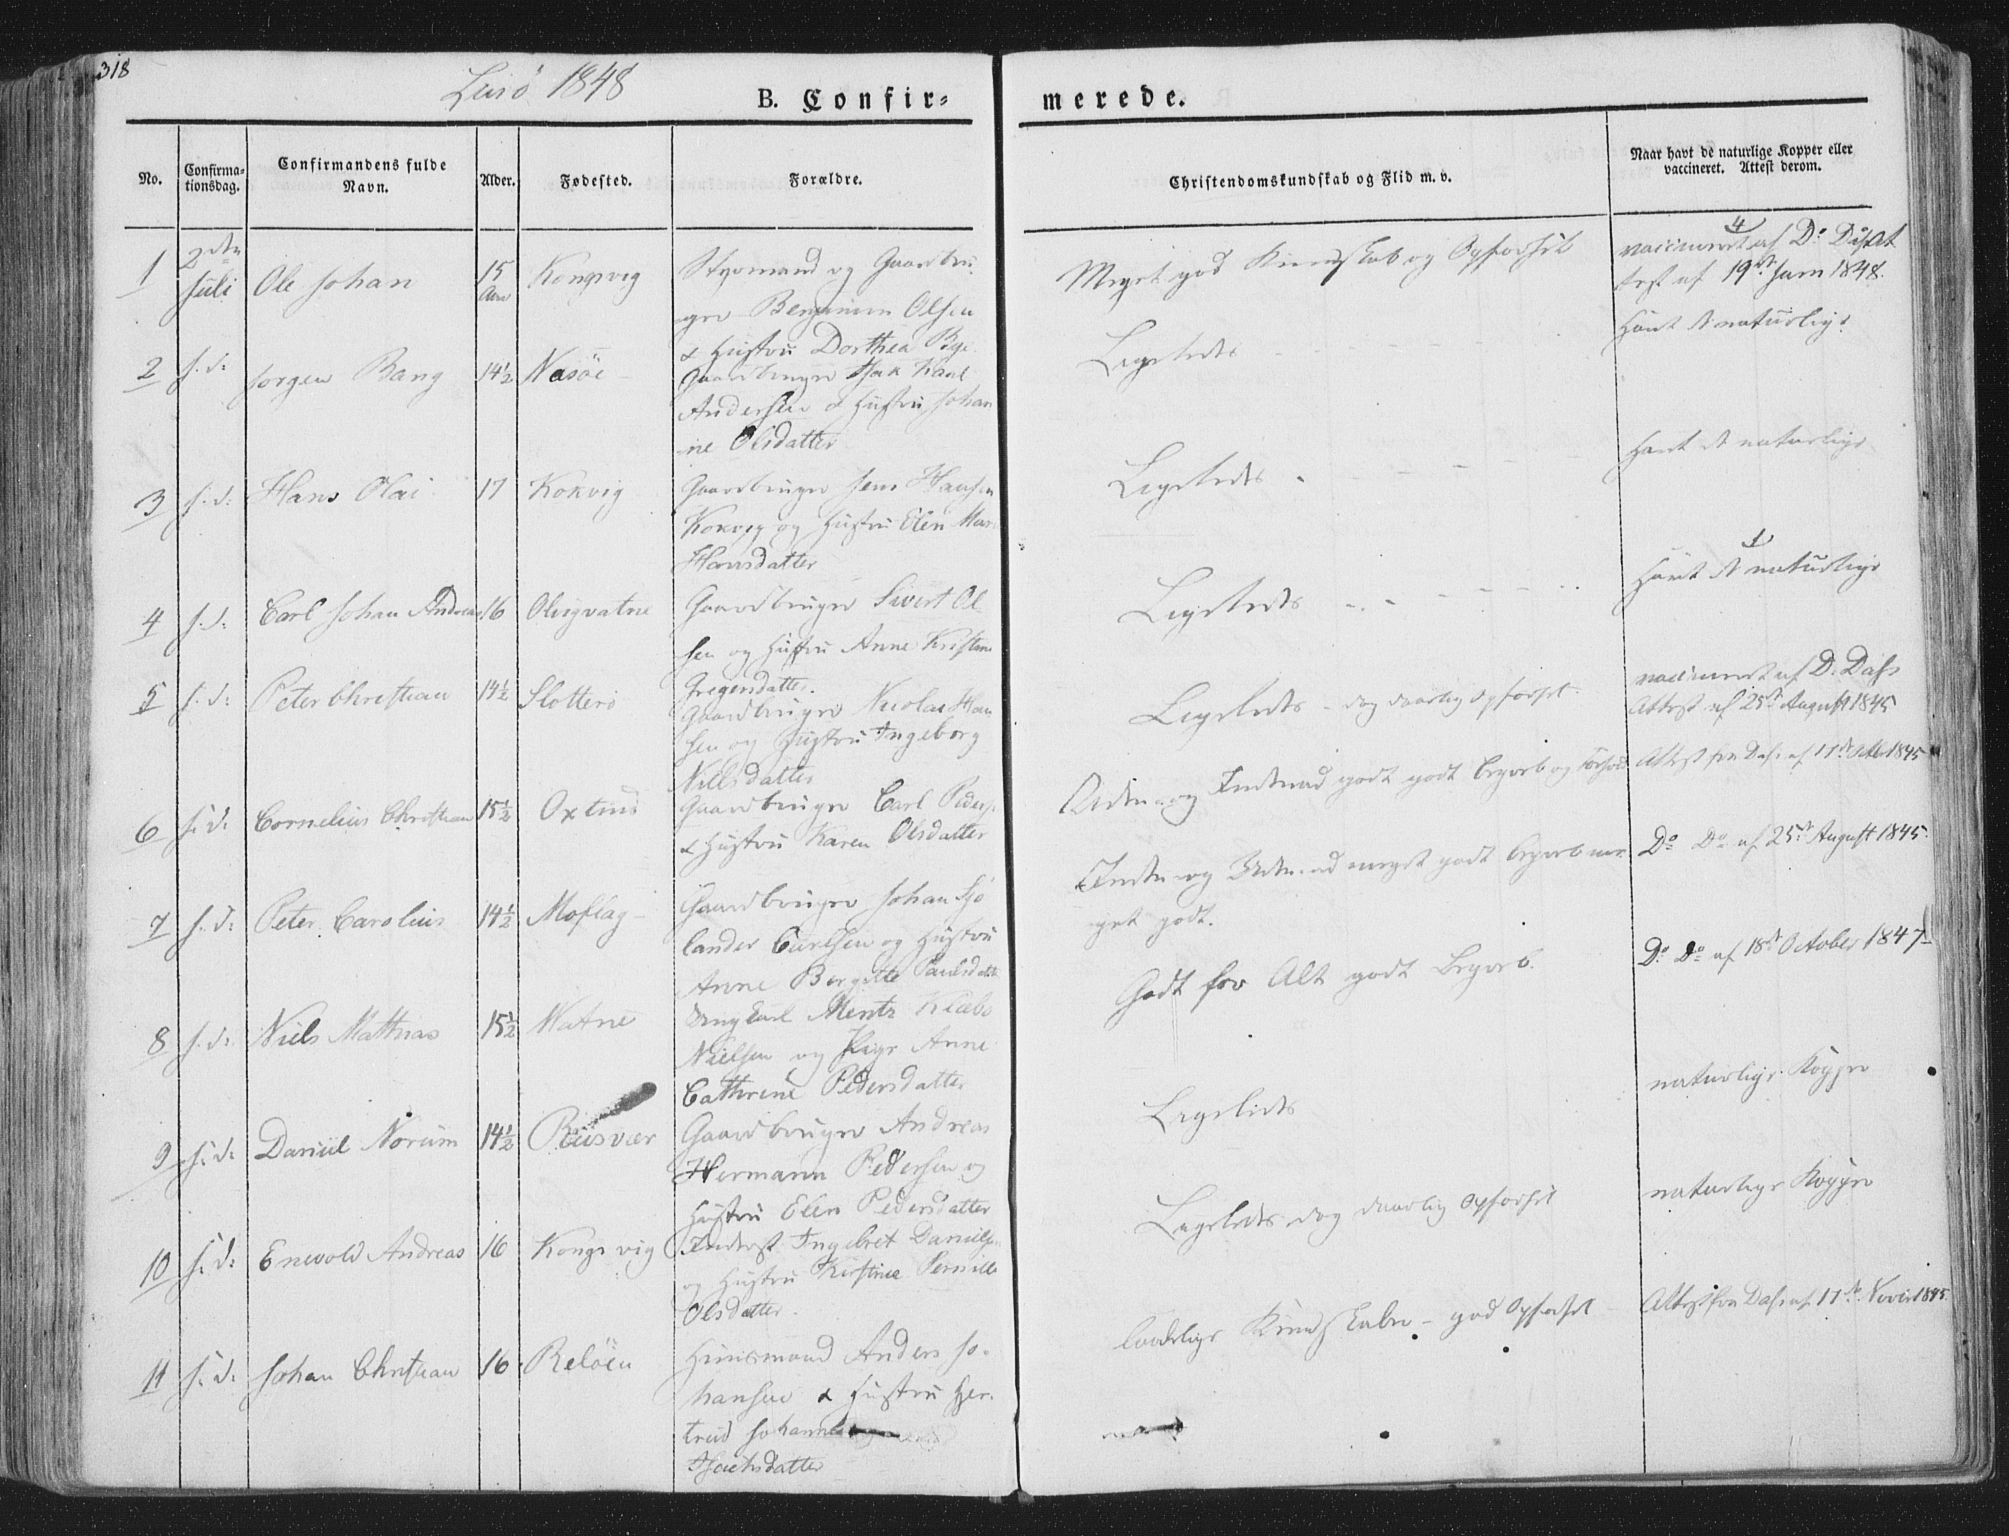 318
1848
B. Confir-
merede.
No.
Confirma-
tionsdag.
Confirmandens fulde
Navn.
Alder.
Fødested.
Forældre.
Christendomskundskab og Flid m. v.
Naar havt de naturlige Kopper eller
vaccineret. Attest derom.
1
2den
Juli
Ole Johan
15
Aar
Kongsvig
Styrmand og Gaardbru-
ger Benjamin Olsen
& Hustru Dorthea
Meget god Kundskab og Opførsel
vaccineret af
test af 19de Juni 1848.
2
s. d.
Jørgen Bang
14½
Næsöe
Gaardbruger Isak
Andersen & Hustru Johan
ne Olsdatter
Ligeledes
havt de naturlige
3
s. d.
Hans Olai
17
Kokvig
Gaardbruger Jens Hansen
Kokvig og Hustru Elen
Hansdatter
Ligeledes
havt de naturlige
4
s. d.
Carl Johan Andreas
16
Gaardbruger Sivert Ol-
sen og Hustru Anne
Gregersdatter.
Ligeledes
havt de naturlige
5
s. d.
Peter Christian
14½
Slotterö
Gaardbruger Nicolai Han
sen og Hustru Ingeborg
Nilsdatter
Ligeledes - dog daarlig Opførsel
vaccineret af D. Dahs
Attest af 25de August 1845
6
s. d.
Cornelius Christian
15½
Oxtind
Gaardbruger Carl Peders.
& Hustru Karen Olsdatter
Uden og Indenad godt godt Begreb og
Attest fra Dahs af 17de 1845
7
s. d.
Peter Carolius
14½
Moflag
Gaardbruger Johan Sjö
lander Carlsen og Hustru
Anne Bergitte Paulsdatter
Inden og Uden ad meget godt Begreb me-
get godt.
Do Do af 25de August 1845.
8
s. d.
Niels Mathias
15½
Watne
Ungkarl Mentz Klæbo
Nielsen og Pige Anne
Cathrine Pedersdatter
Godt for Alt godt Begreb.
Do Do af 18de October 1847
9
s. d.
Daniel Norum
14½
Riisvær
Gaardbruger Andreas
Hermann Pedersen og
Hustru Elen Pedersdatter
Ligeledes
naturlige Kopper
10
s. d.
Enevold Andreas
16
Kongsvig
Inderst Ingebret Daniels.
og Hustru Kirstine Pernille
Olsdatter.
Ligeledes dog daarlig Opførsel
naturlige Kopper
11
s. d.
Johan Christian
16
Relöen
Huusmand Anders Jo-
hansen & Hustru Ger-
trud
Isachsdatter
Kundskaber - god Opførsel
Attest fra Dahs af 17de 1845